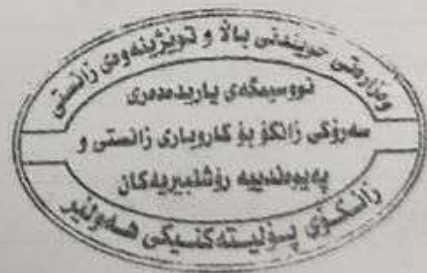 وەزارەتی خوێندنی باڵا و توێژینەوەی زانستی
نووسینگەی یاریدەدەری
سەرۆکی زانکۆ بۆ کاروباری زانستی و
پەیوەندییە رۆشنبیریەکان
زانکۆی پۆلیتەکنیکی هەولێر